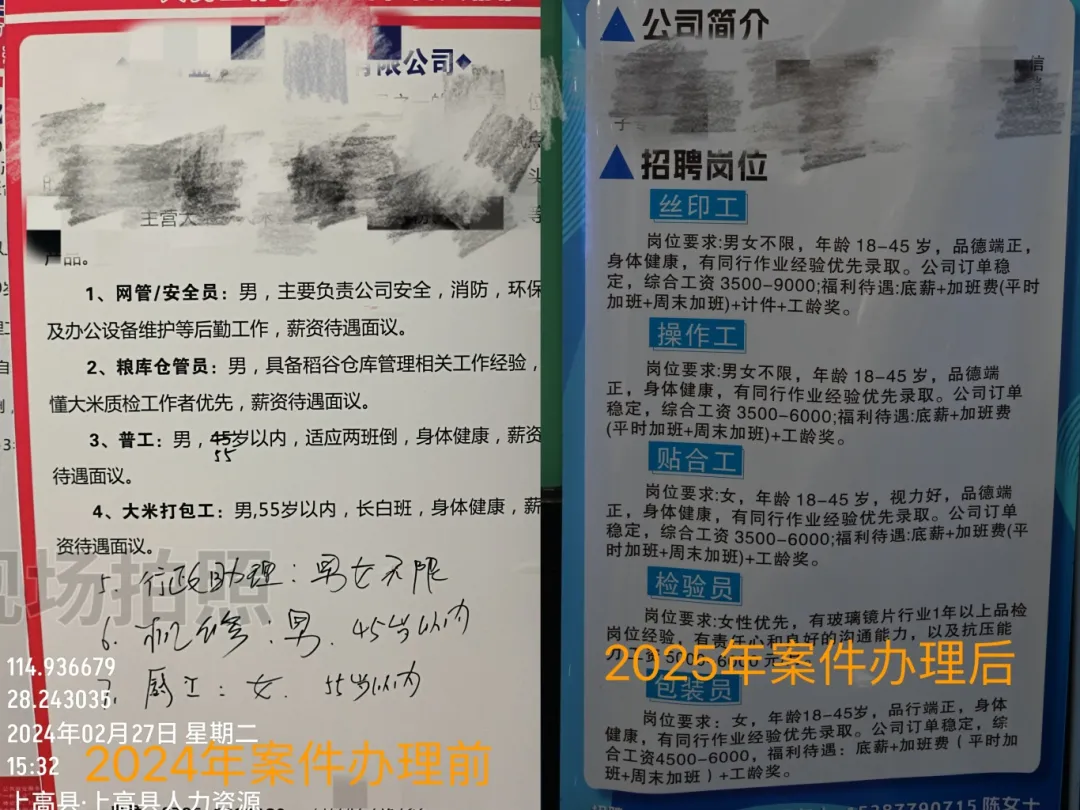 有限公司
主营大
产品。
1、网管/安全员：男，主要负责公司安全，消防，环保
及办公设备维护等后勤工作，薪资待遇面议。
2、粮库仓管员：男，具备稻谷仓库管理相关工作经验，
懂大米质检工作者优先，薪资待遇面议。
3、普工：男，45岁以内，适应两班倒，身体健康，薪资
55
待遇面议。
4、大米打包工：男,55岁以内，长白班，身体健康，薪
资待遇面议。
5. 行政助理：男女不限
6. 机修：男. 45岁以内
7. 厨工：女. 55岁以内
现场拍照
114.936679
28.243035
2024年02月27日 星期二
15:32
上高县·上高县人力资源
2024年案件办理前
公司简介
信
子
招聘岗位
丝印工
岗位要求:男女不限，年龄 18-45 岁，品德端正，
身体健康，有同行作业经验优先录取。公司订单稳
定，综合工资 3500-9000;福利待遇:底薪+加班费(平时
加班+周末加班)+计件+工龄奖。
操作工
岗位要求:男女不限，年龄 18-45 岁，品德端
正，身体健康，有同行作业经验优先录取。公司订单
稳定，综合工资 3500-6000;福利待遇:底薪+加班费
(平时加班+周末加班)+工龄奖。
贴合工
岗位要求:女，年龄 18-45 岁，视力好，品德端
正，身体健康，有同行作业经验优先录取。公司订单
稳定，综合工资 3500-6000;福利待遇:底薪+加班费(平
时加班+周末加班)+工龄奖。
检验员
岗位要求:女性优先，有玻璃镜片行业1年以上品检
岗位经验，有责任心和良好的沟通能力，以及抗压能
力工资5000-6000 元
2025年案件办理后
包装员
岗位要求：女，年龄18-45岁，品行端正，身体
健康，有同行作业经验优先录取。公司订单稳定，综
合工资4500-6000，福利待遇：底薪+加班费（平时加
班+周末加班）+工龄奖。
陈女士